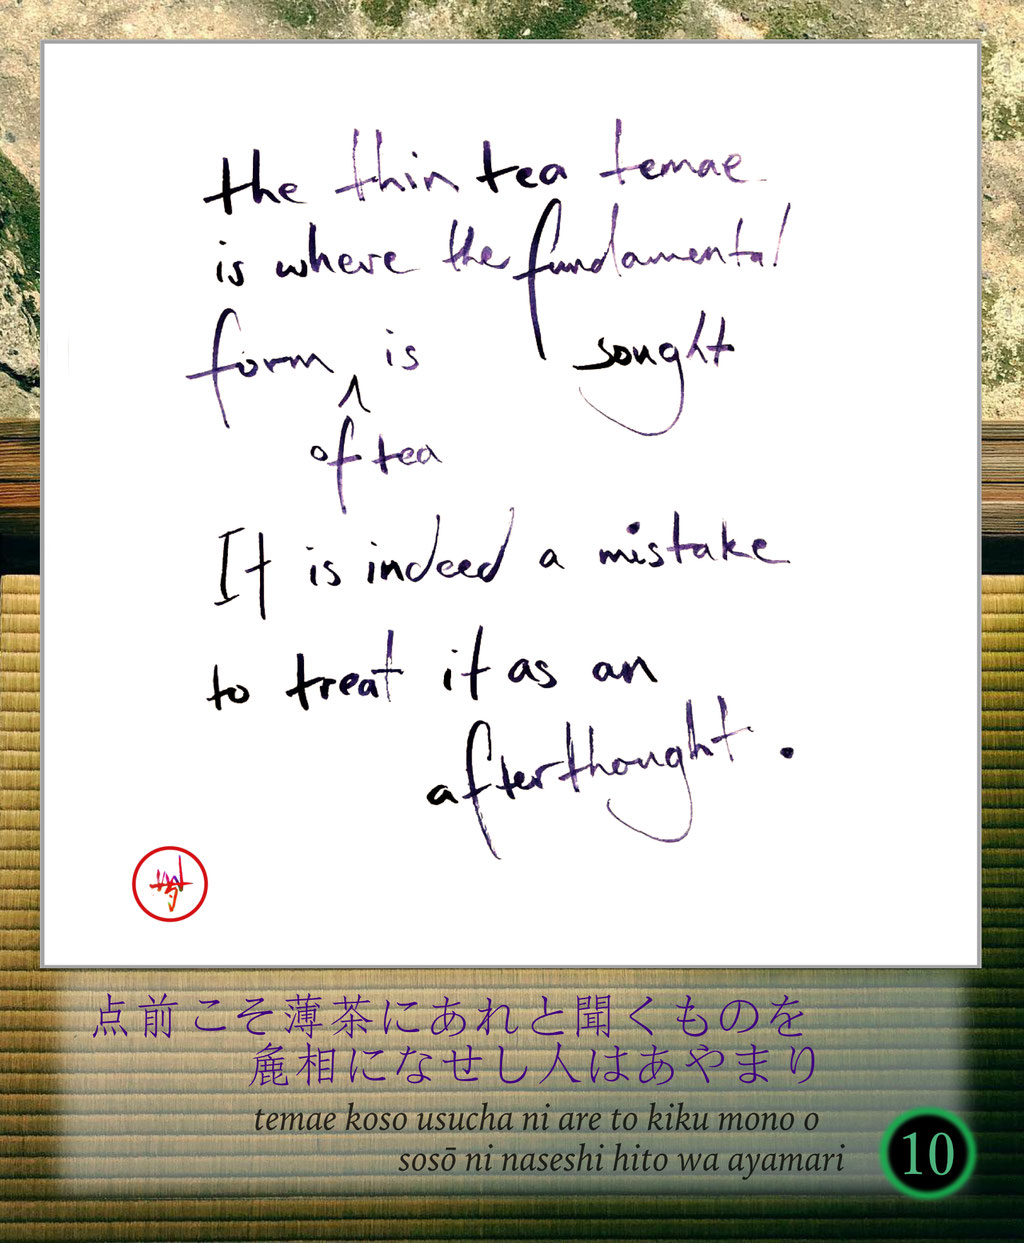 the thin tea temae
is where the fundamental
form is sought
^
of tea
It is indeed a mistake
to treat it as an
afterthought.
点前こそ薄茶にあれと聞くものを
麁相になせし人はあやまり
temae koso usucha ni are to kiku mono o
sosō ni naseshi hito wa ayamari
10